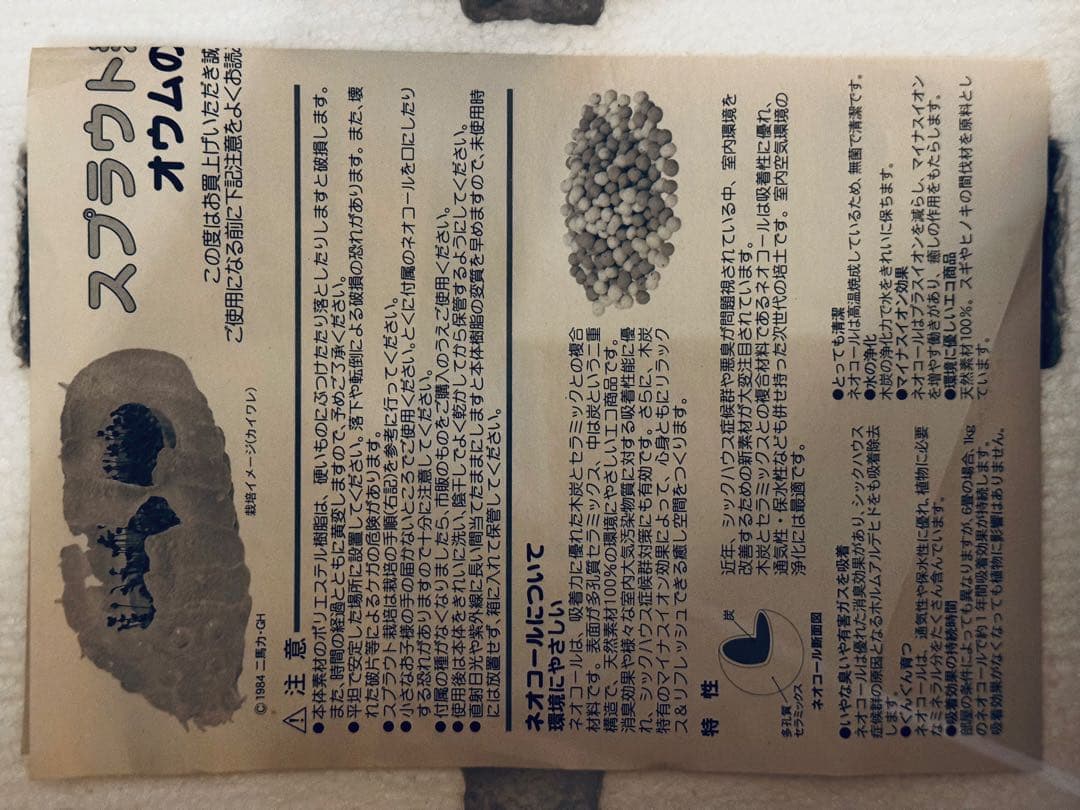 スプラウト
オウムの
この度はお買上げいただき誠
ご使用になる前に下記注意をよくお読
栽培イメージ(カイワレ)
©1984 二馬力・GH
注意
●本体素材のポリエステル樹脂は、硬いものにぶつけたり落としたりしますと破損します。
また、時間の経過とともに黄変しますので、予めご了承ください。
●平坦で安定した場所に設置してください。落下や転倒による破損の恐れがあります。また、壊
れた破片等によるケガの危険があります。
●スプラウト栽培は栽培の手順(右記)を参考に行ってください。
●小さなお子様の手の届かないところでご使用ください。とくに付属のネオコールを口にしたり
する恐れがありますので十分に注意してください。
●付属の種がなくなりましたら、市販のものをご購入のうえご使用ください。
●使用後は本体をきれいに洗い、陰干しでよく乾かしてから保管するようにしてください。
●直射日光や紫外線に長い間当てたままにしますと本体樹脂の変質を早めますので、未使用時
には放置せず、箱に入れて保管してください。
ネオコールについて
環境にやさしい
ネオコールは、吸着力に優れた木炭とセラミックとの複合
材料です。表面が多孔質セラミックス、中は炭という二重
構造で、天然素材100%の環境にやさしいエコ商品です。
消臭効果や様々な室内大気汚染物質に対する吸着性能に優
れ、シックハウス症候群対策にも有効です。さらに、木炭
特有のマイナスイオン効果によって、心身ともにリラック
ス＆リフレッシュできる癒し空間をつくります。
特性
炭
多孔質
セラミックス
ネオコール断面図
近年、シックハウス症候群や悪臭が問題視されている中、室内環境を
改善するための新素材が大変注目されています。
木炭とセラミックスとの複合材料であるネオコールは吸着性に優れ、
通気性・保水性なども併せ持った次世代の培土です。室内空気環境の
浄化には最適です。
●いやな臭いや有害ガスを吸着
ネオコールは優れた消臭効果があり、シックハウス
症候群の原因となるホルムアルデヒドをも吸着除去
します。
●ぐんぐん育つ
ネオコールは、通気性や保水性に優れ、植物に必要
なミネラル分をたくさん含んでいます。
●吸着効果の持続時間
部屋の条件によっても異なりますが、6畳の場合、1kg
のネオコールで約1年間吸着効果が持続します。
吸着効果がなくなっても植物に影響はありません。
●とっても清潔
ネオコールは高温焼成しているため、無菌で清潔です。
●水の浄化
木炭の浄化力で水をきれいに保ちます。
●マイナスイオン効果
ネオコールはプラスイオンを減らし、マイナスイオン
を増やす働きがあり、癒しの作用をもたらします。
●環境に優しいエコ商品
天然素材100%。スギやヒノキの間伐材を原料とし
ています。